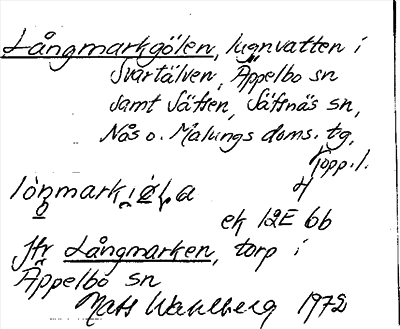 Långmarkgölen, lugnvatten i
Svartälven, Äppelbo sn
samt Säfsen, Säfsnäs sn,
Nås o. Malungs doms. tg,
Topp.l.
ek 12E 6b
Jfr Långmarken, torp i
Äppelbo sn
Mats Wahlberg 1972